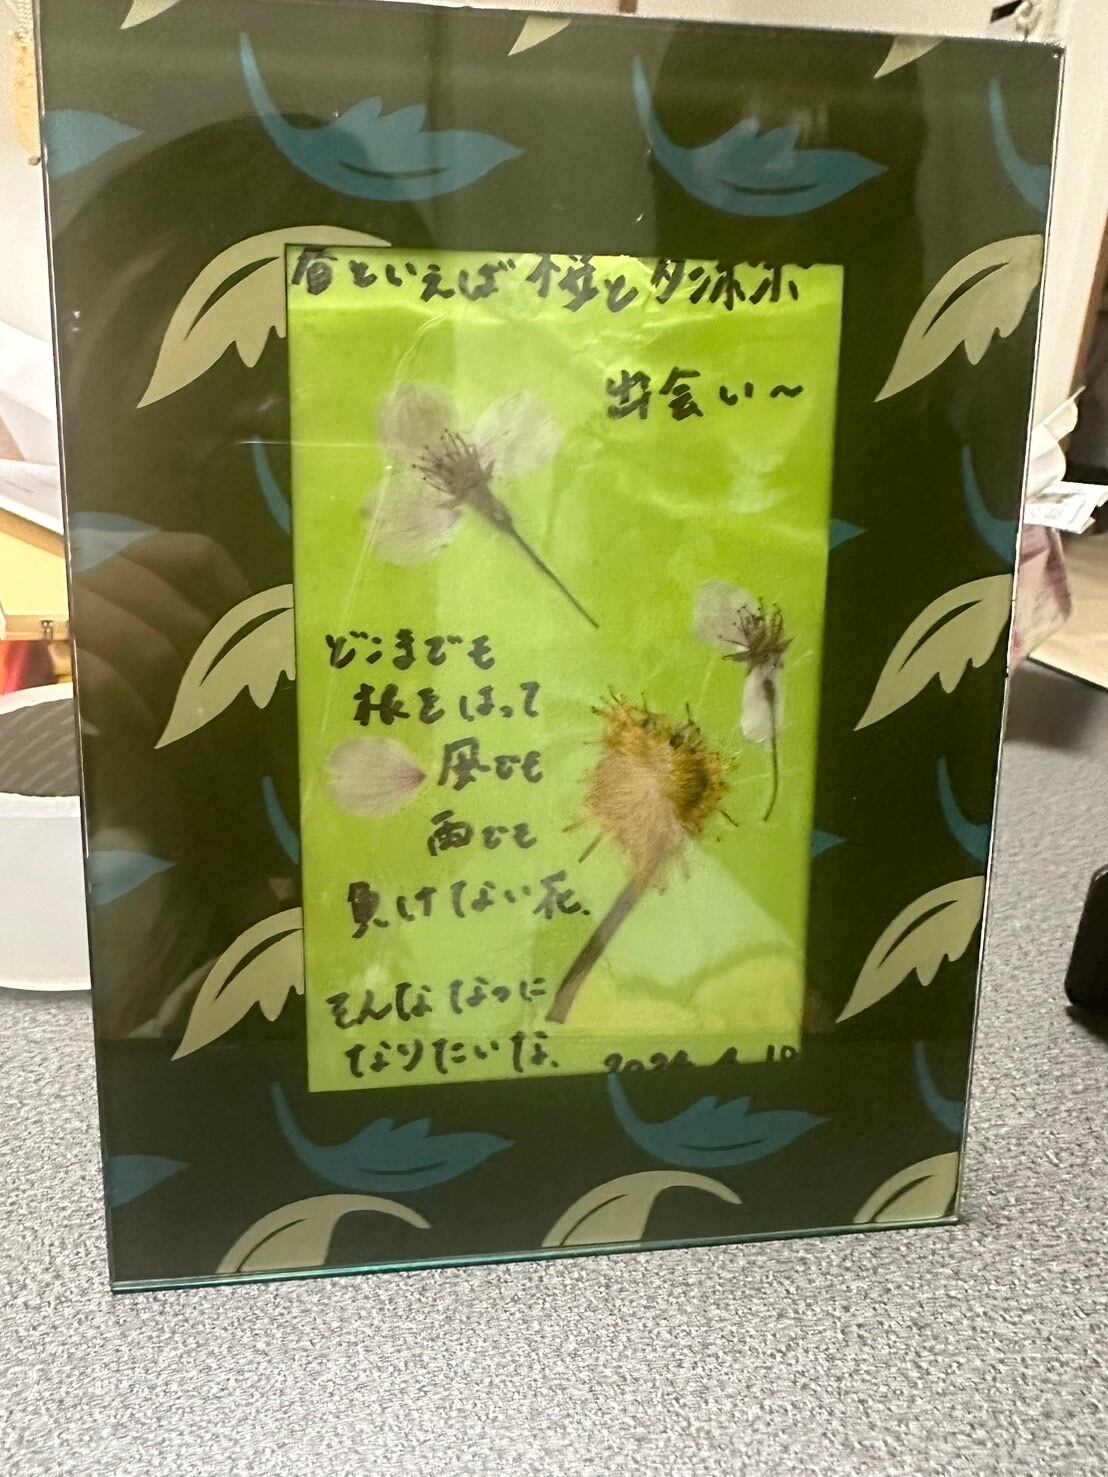 春といえば桜とタンポポ
出会い〜
どこまでも
根をはって
風でも
雨でも
負けない花、
そんなな
なりたいな、